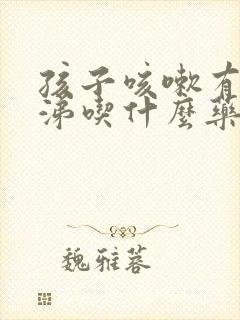 孩子咳嗽有
涕喫什麼藥
魏雅蓉